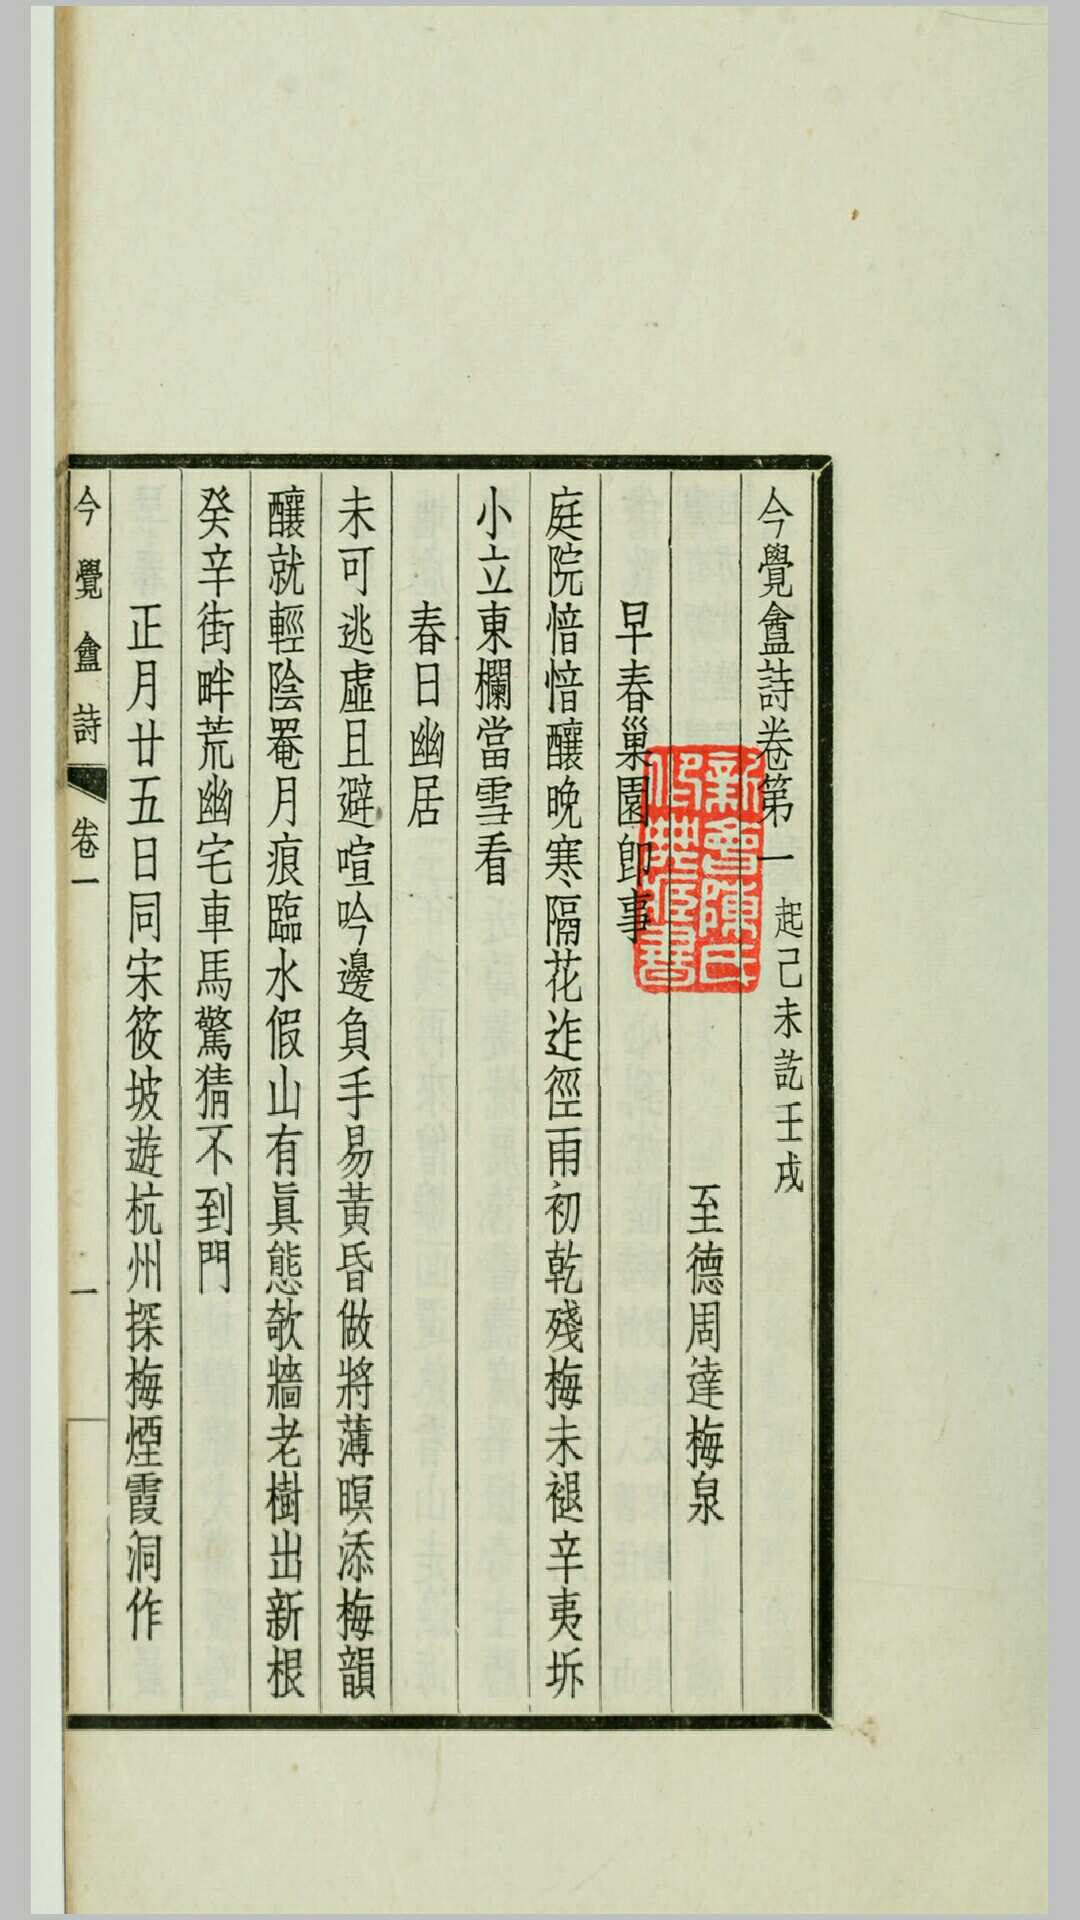 今覺盦詩卷第一 起己未訖壬戌
至德周達梅泉
早春巢園卽事
庭院愔愔釀晚寒隔花迮徑雨初乾殘梅未褪辛夷坼
小立東欄當雪看
春日幽居
未可逃虛且避喧吟邊負手易黃昏做將薄暝添梅韻
釀就輕陰罨月痕臨水假山有眞態欹牆老樹出新根
癸辛街畔荒幽宅車馬驚猜不到門
正月廿五日同宋筱坡遊杭州探梅煙霞洞作
今覺盦詩 卷一 一
新會陳氏